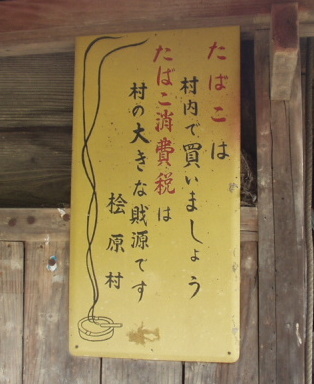 たばこは
村内で買いましょう
たばこ消費税は
村の大きな財源です
桧原村